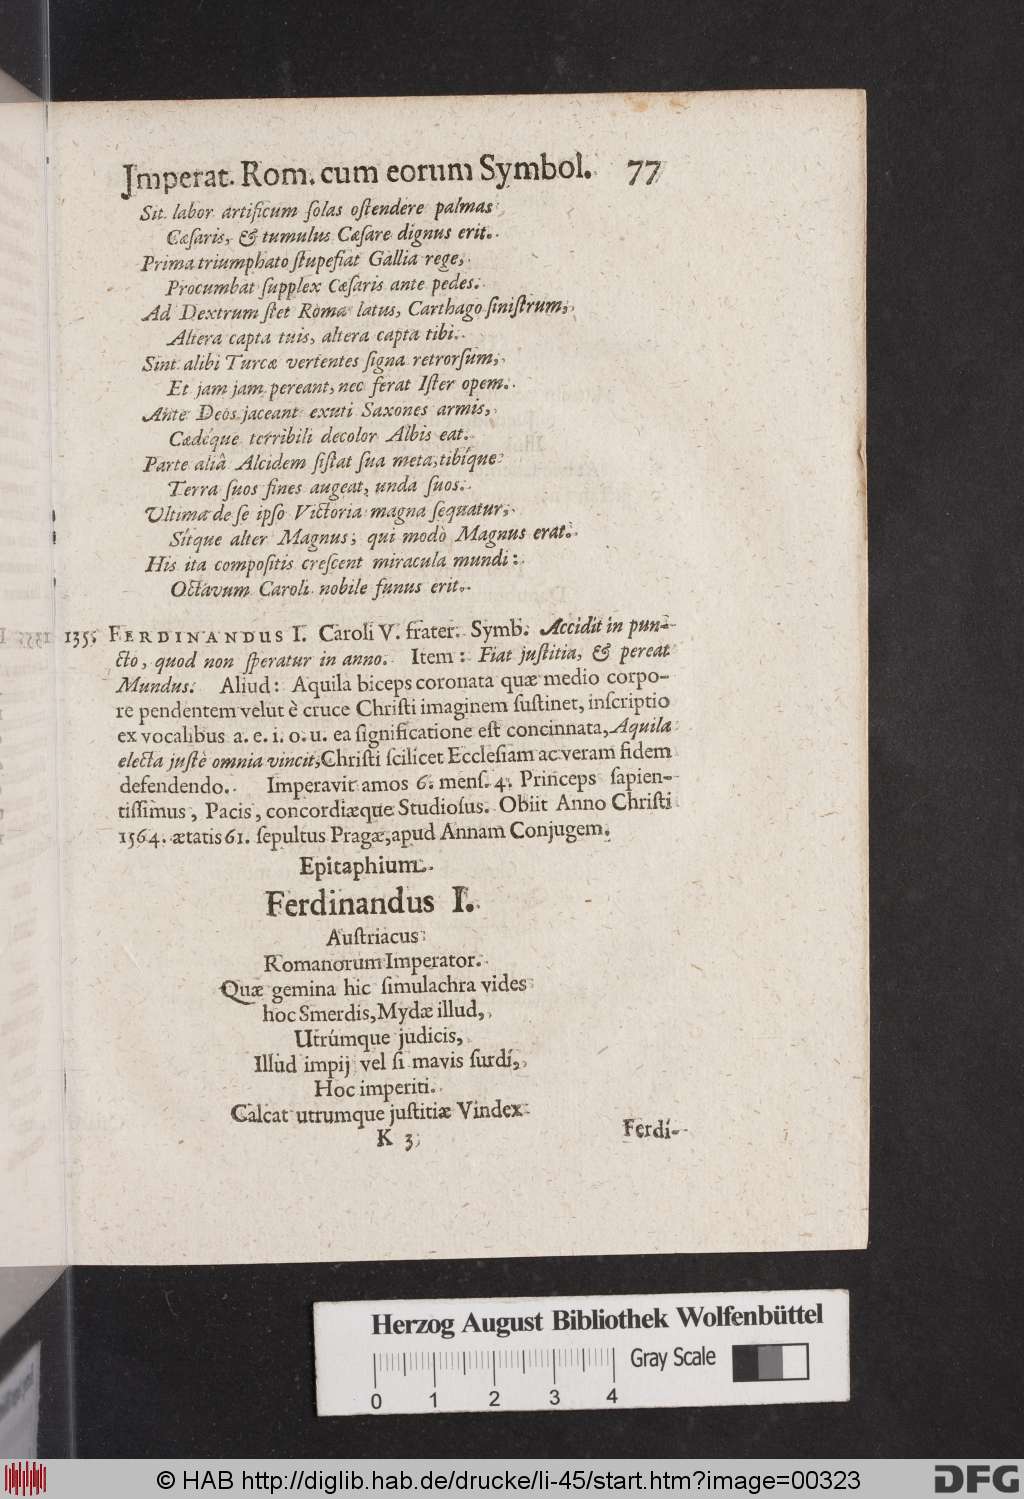 Jmperat. Rom. cum eorum Symbol. 77
Sit labor artificum ſolas oſtendere palmas
Cæſaris, & tumulus Cæſare dignus erit.
Prima triumphato ſtupefiat Gallia rege,
Procumbat ſupplex Cæſaris ante pedes.
Ad Dextrum ſtet Roma latus, Carthago ſiniſtrum,
Altera capta tuis, altera capta tibi.
Sint alibi Turcæ vertentes ſigna retrorſum,
Et jam jam pereant, nec ferat Iſter opem.
Ante Deos jaceant exuti Saxones armis,
Cædéque terribili decolor Albis eat.
Parte aliâ Alcidem ſiſtat ſua meta, tibíque
Terra ſuos fines augeat, unda ſuos.
Ultima de ſe ipſo Victoria magna ſequatur,
Sítque alter Magnus, qui modò Magnus erat.
His ita compoſitis creſcent miracula mundi:
Octavum Caroli nobile funus erit.
135. FERDINANDUS I. Caroli V. frater. Symb. Accidit in pun-
cto, quod non ſperatur in anno. Item: Fiat juſtitia, & pereat
Mundus. Aliud: Aquila biceps coronata quæ medio corpo-
re pendentem velut è cruce Chriſti imaginem ſuſtinet, inſcriptio
ex vocalibus a. e. i. o. u. ea ſignificatione eſt concinnata, Aquila
electa juſtè omnia vincit, Chriſti ſcilicet Eccleſiam ac veram fidem
defendendo. Imperavit amos 6. menſ. 4. Princeps ſapien-
tiſſimus, Pacis, concordiæque Studioſus. Obiit Anno Chriſti
1564. ætatis 61. ſepultus Pragæ, apud Annam Conjugem.
Epitaphium.
Ferdinandus I.
Auſtriacus
Romanorum Imperator.
Quæ gemina hic ſimulachra vides
hoc Smerdis, Mydæ illud,
Utrúmque judicis,
Illud impij vel ſi mavis ſurdí,
Hoc imperiti.
Calcat utrumque juſtitiæ Vindex
K 3
Ferdí-
Herzog August Bibliothek Wolfenbüttel
Gray Scale
0 1 2 3 4
© HAB http://diglib.hab.de/drucke/li-45/start.htm?image=00323
DFG